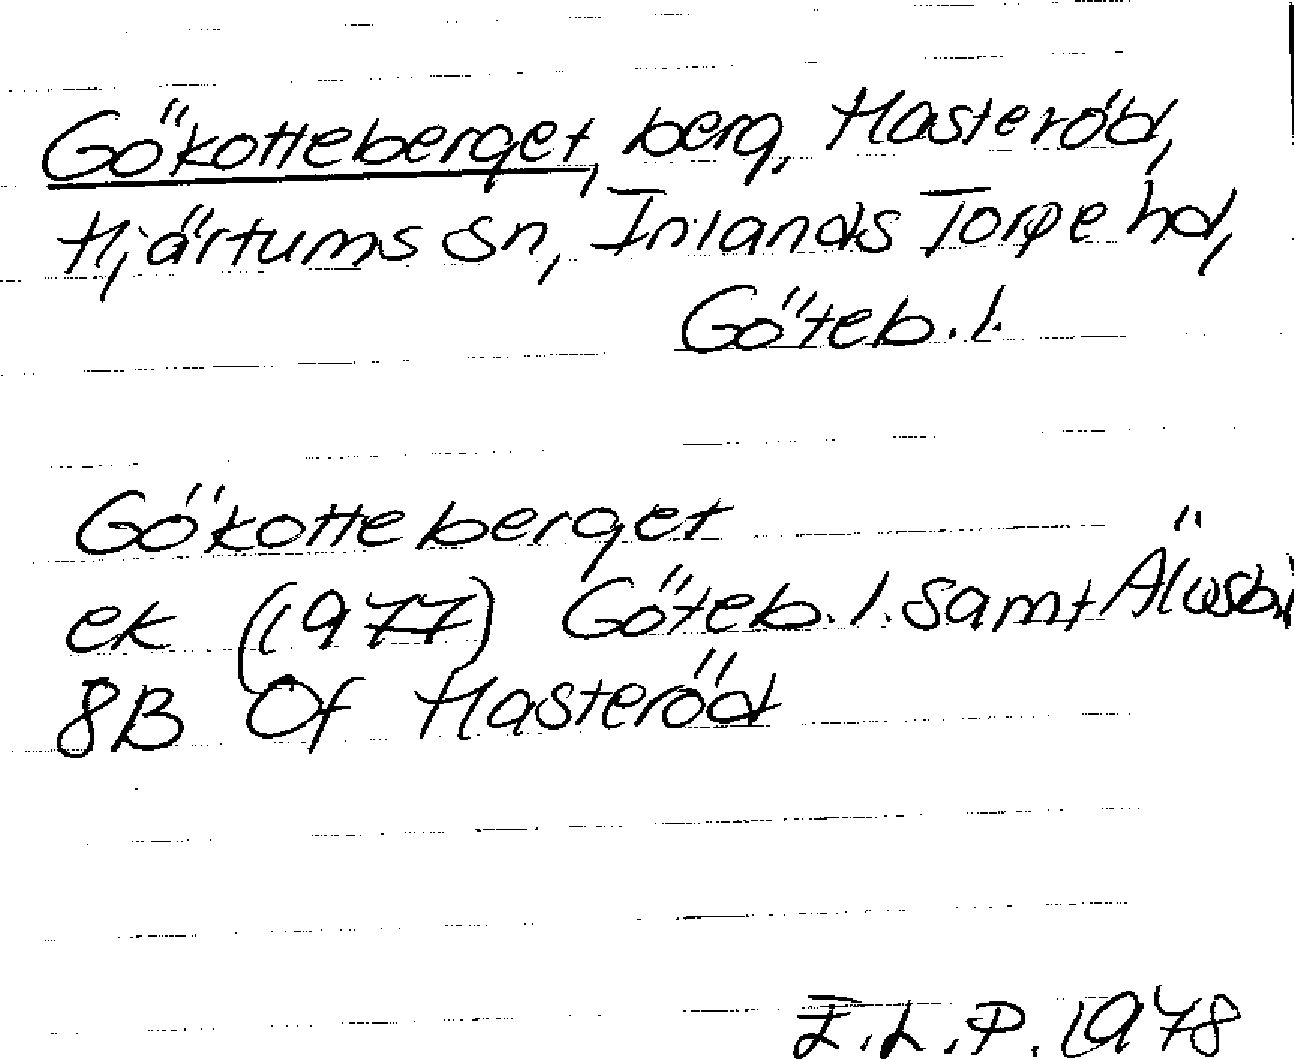 Gökotteberget, berg, Hasteröd,
Hjärtums sn, Inlands Torpe hd,
Göteb. l.
Gökotteberget
ek (1977) Göteb. l. samt Älvsb.
8B 0f Hasteröd
I.L.P. 1978